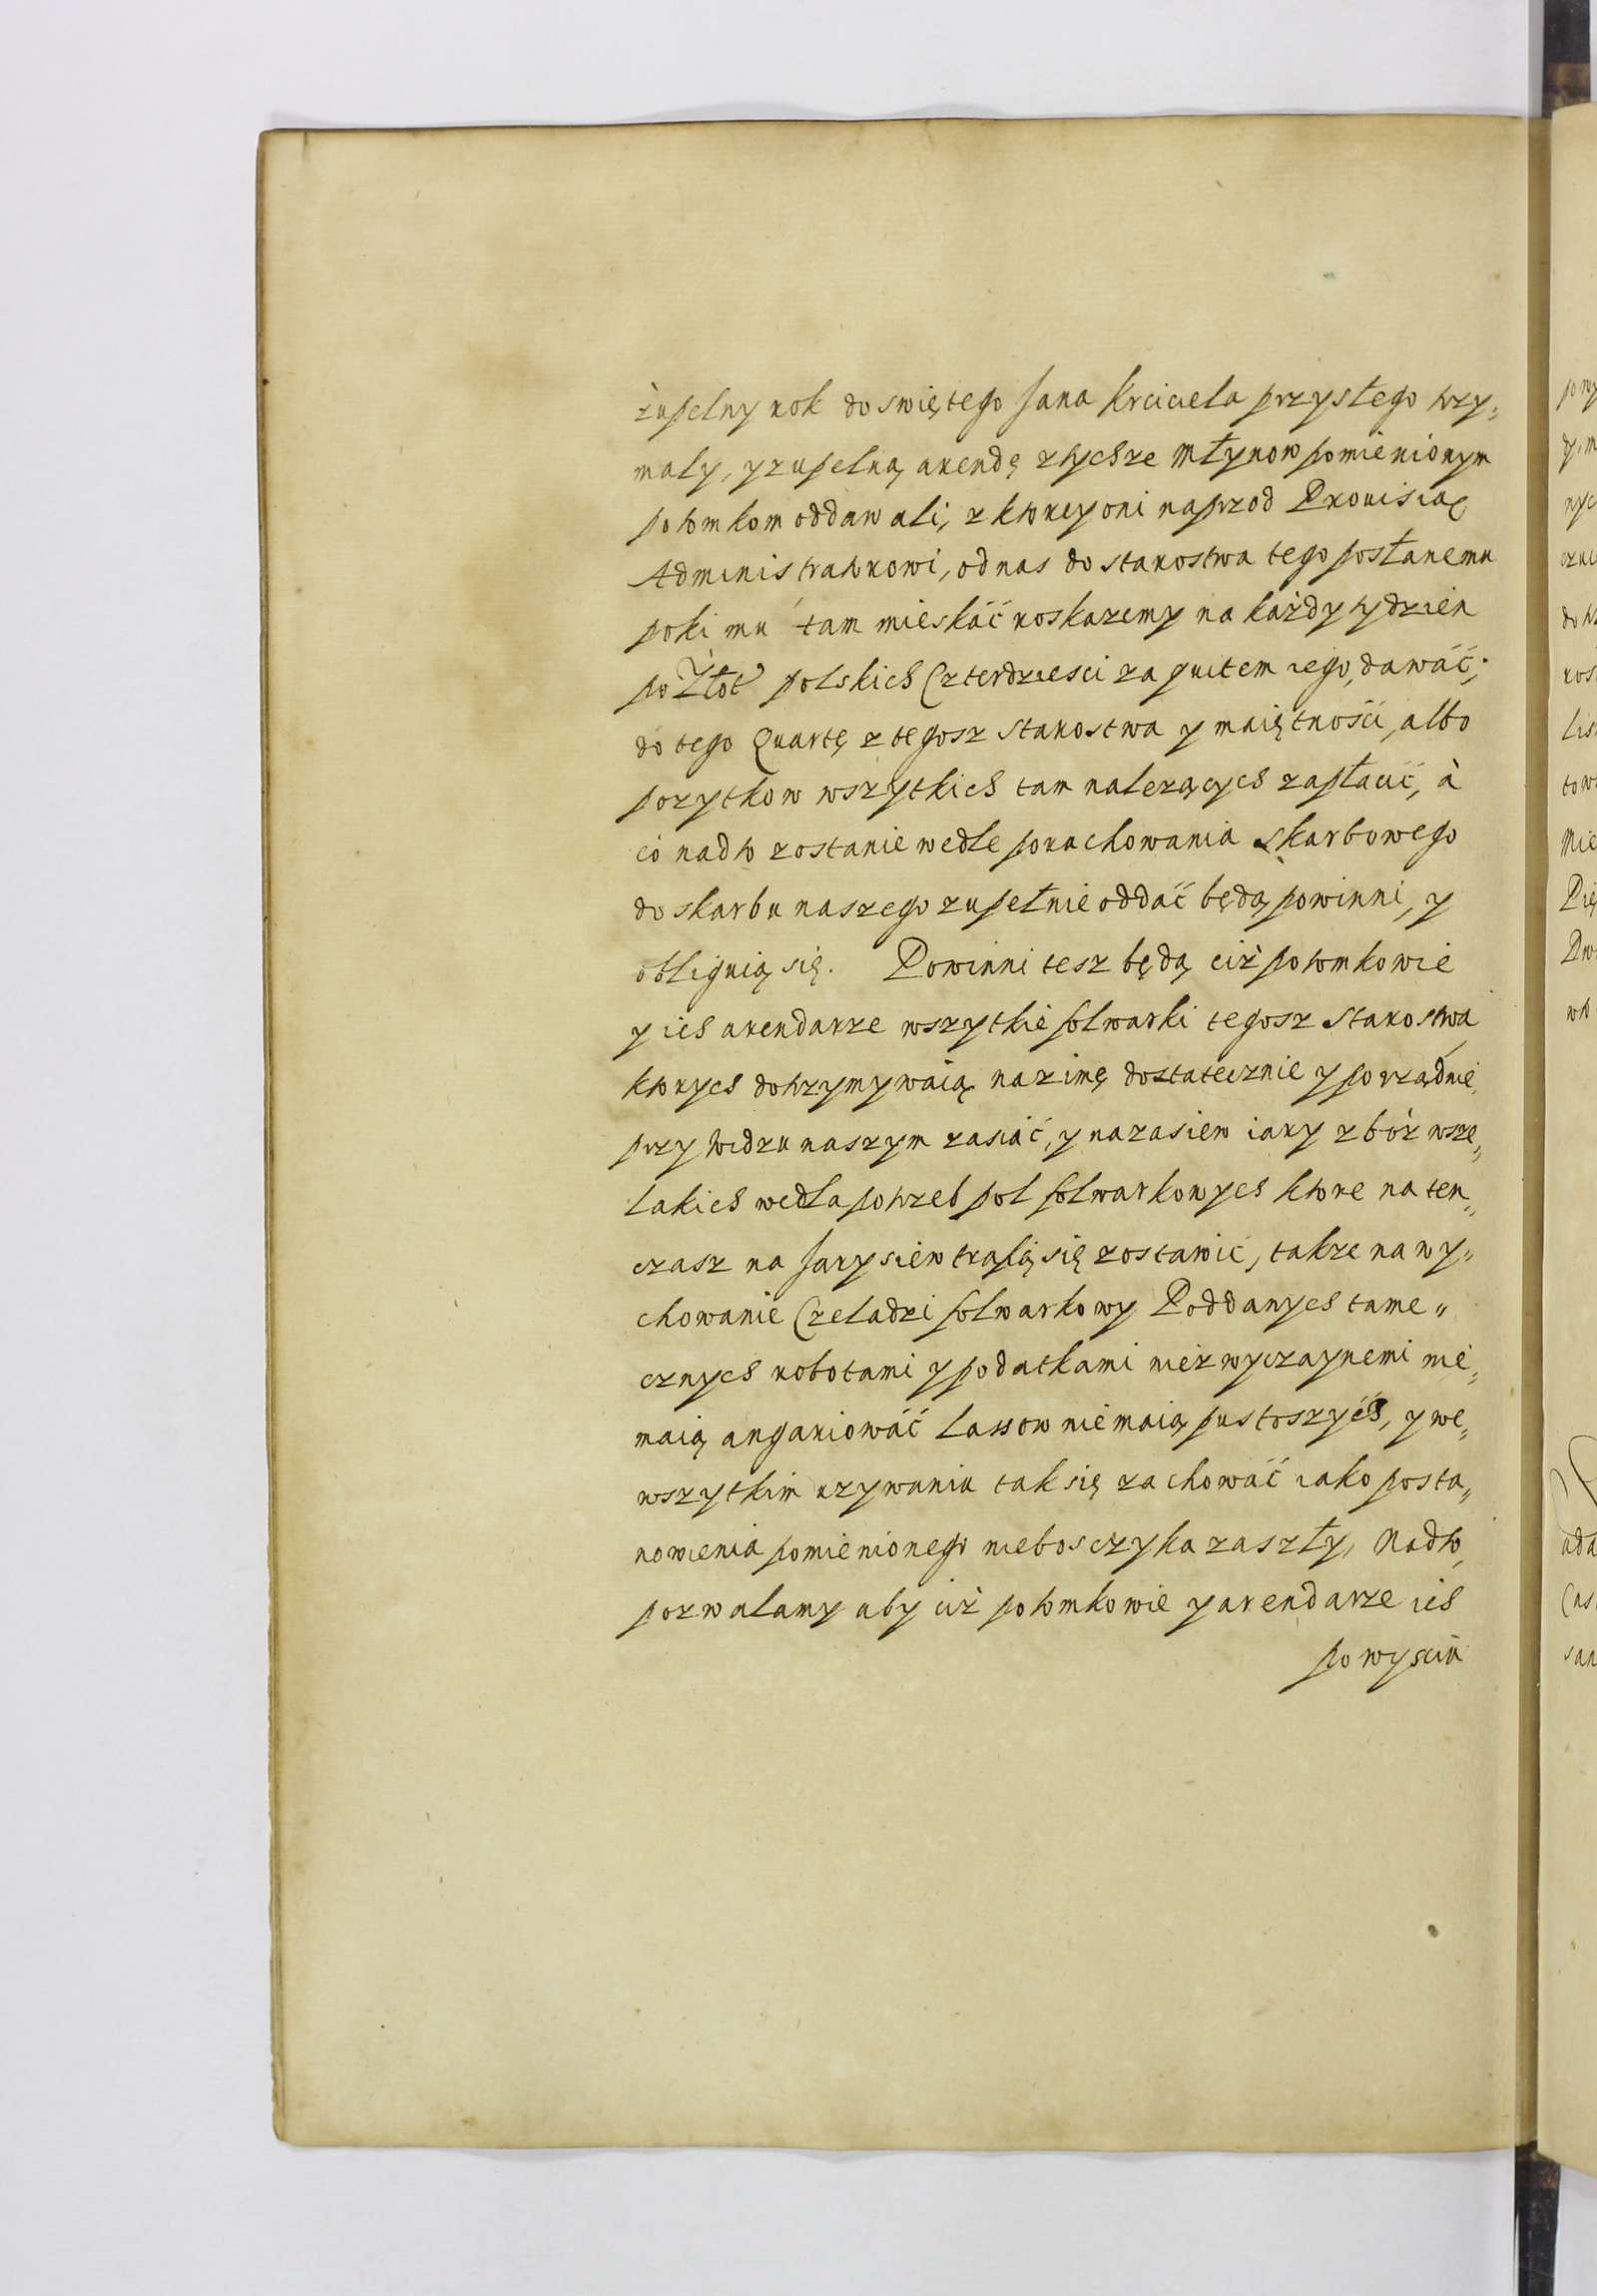 żupelny rok do swiętego Jana Krciciela przysłego trzy=
maly, y zupelną arendę z tychze Młynow pomienionym
potomkom oddawali, z ktorey oni naprzod Prouisią
Administratorowi, od nas do starostwa tego posłanemu
poki mu tam mieskać roskazemy na każdy tydzien
po Złot polskich Czterdziesci za quitem iego, dawać;
do tego Quartę z tegosz starostwa y maiętnosci, albo
pozytkow wszytkich tam nalezących zapłacić, à
co nad to zostanie wedle porachowania skarbowego
do skarbu naszego zupełnie oddać będą powinni, y
obliguią się. Powinni tesz będą ciż potomkowie
y ich arendarze wszytkie folwarki tegosz starostwa
ktorych dotrzymywaią na zimę dostatecznie y porządnie
przy widzu naszym zasiać, y na zasiew iary zboż wsze=
lakich wedla potrzeb pol folwarkowych ktore na ten=
czasz na Jary siew trafią się zostawić, takze na wy=
chowanie Czeladzi folwarkowy Poddanych tame=
cznych robotami y podatkami niezwyczaynemi nie=
maią angariować Lassow nie maią pustoszyć, y we=
wszytkim uzywaniu tak się zachować iako posta=
nowienia pomienionego nieboszczyka zaszły, Nad to
pozwalamy aby ciż potomkowie y arendarze ich
po wysciu